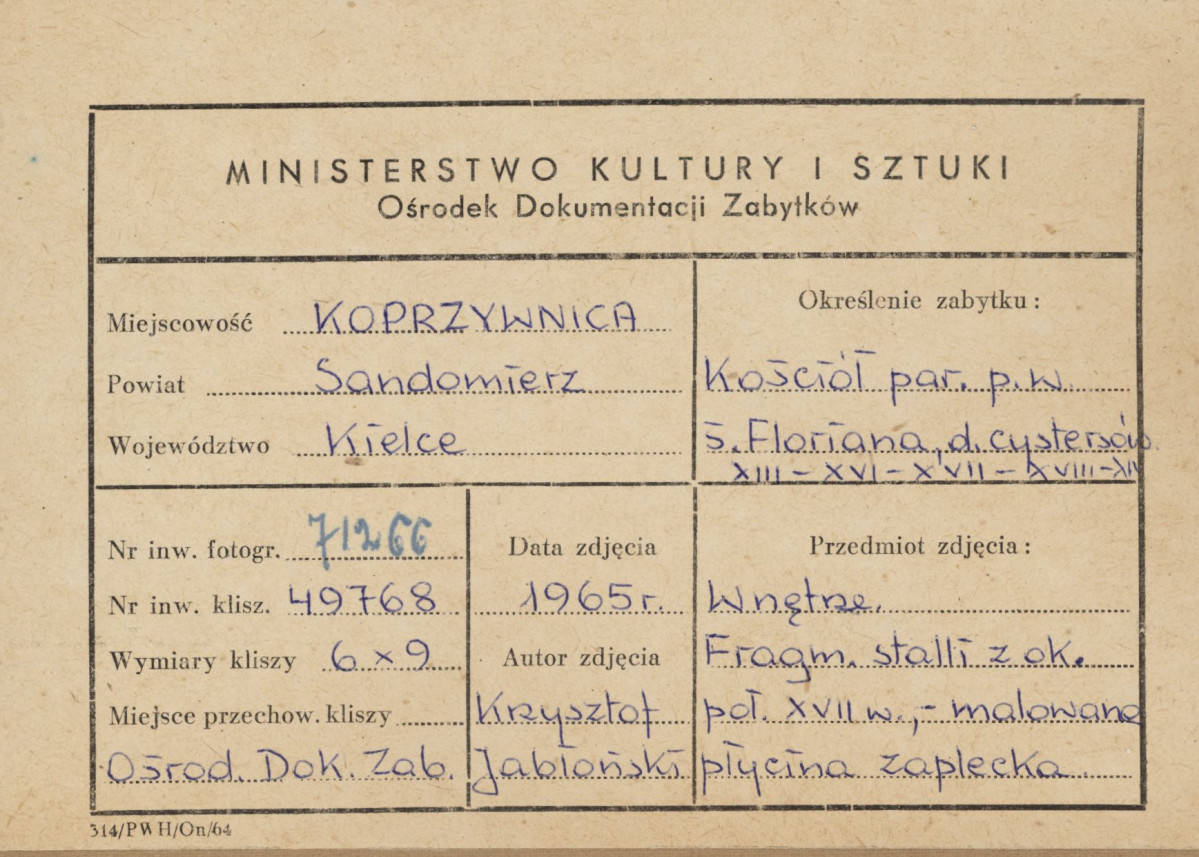 MINISTERSTWO KULTURY I SZTUKI
Ośrodek Dokumentacji Zabytków
Miejscowość KOPRZYWNICA
Powiat Sandomierz
Województwo Kielce
Określenie zabytku:
Kościół par. p.w.
ś. Floriana, d. cystersów
XIII – XVI – XVII – XVIII – XIX
Nr inw. fotogr. 71266
Nr inw. klisz. 49768
Wymiary kliszy 6 x 9
Miejsce przechow. kliszy
Ośrod. Dok. Zab.
Data zdjęcia
1965 r.
Autor zdjęcia
Krzysztof
Jabłoński
Przedmiot zdjęcia:
Wnętrze.
Fragm. stalli z ok.
poł. XVII w., – malowana
płycina zaplecka
314/PWH/On/64